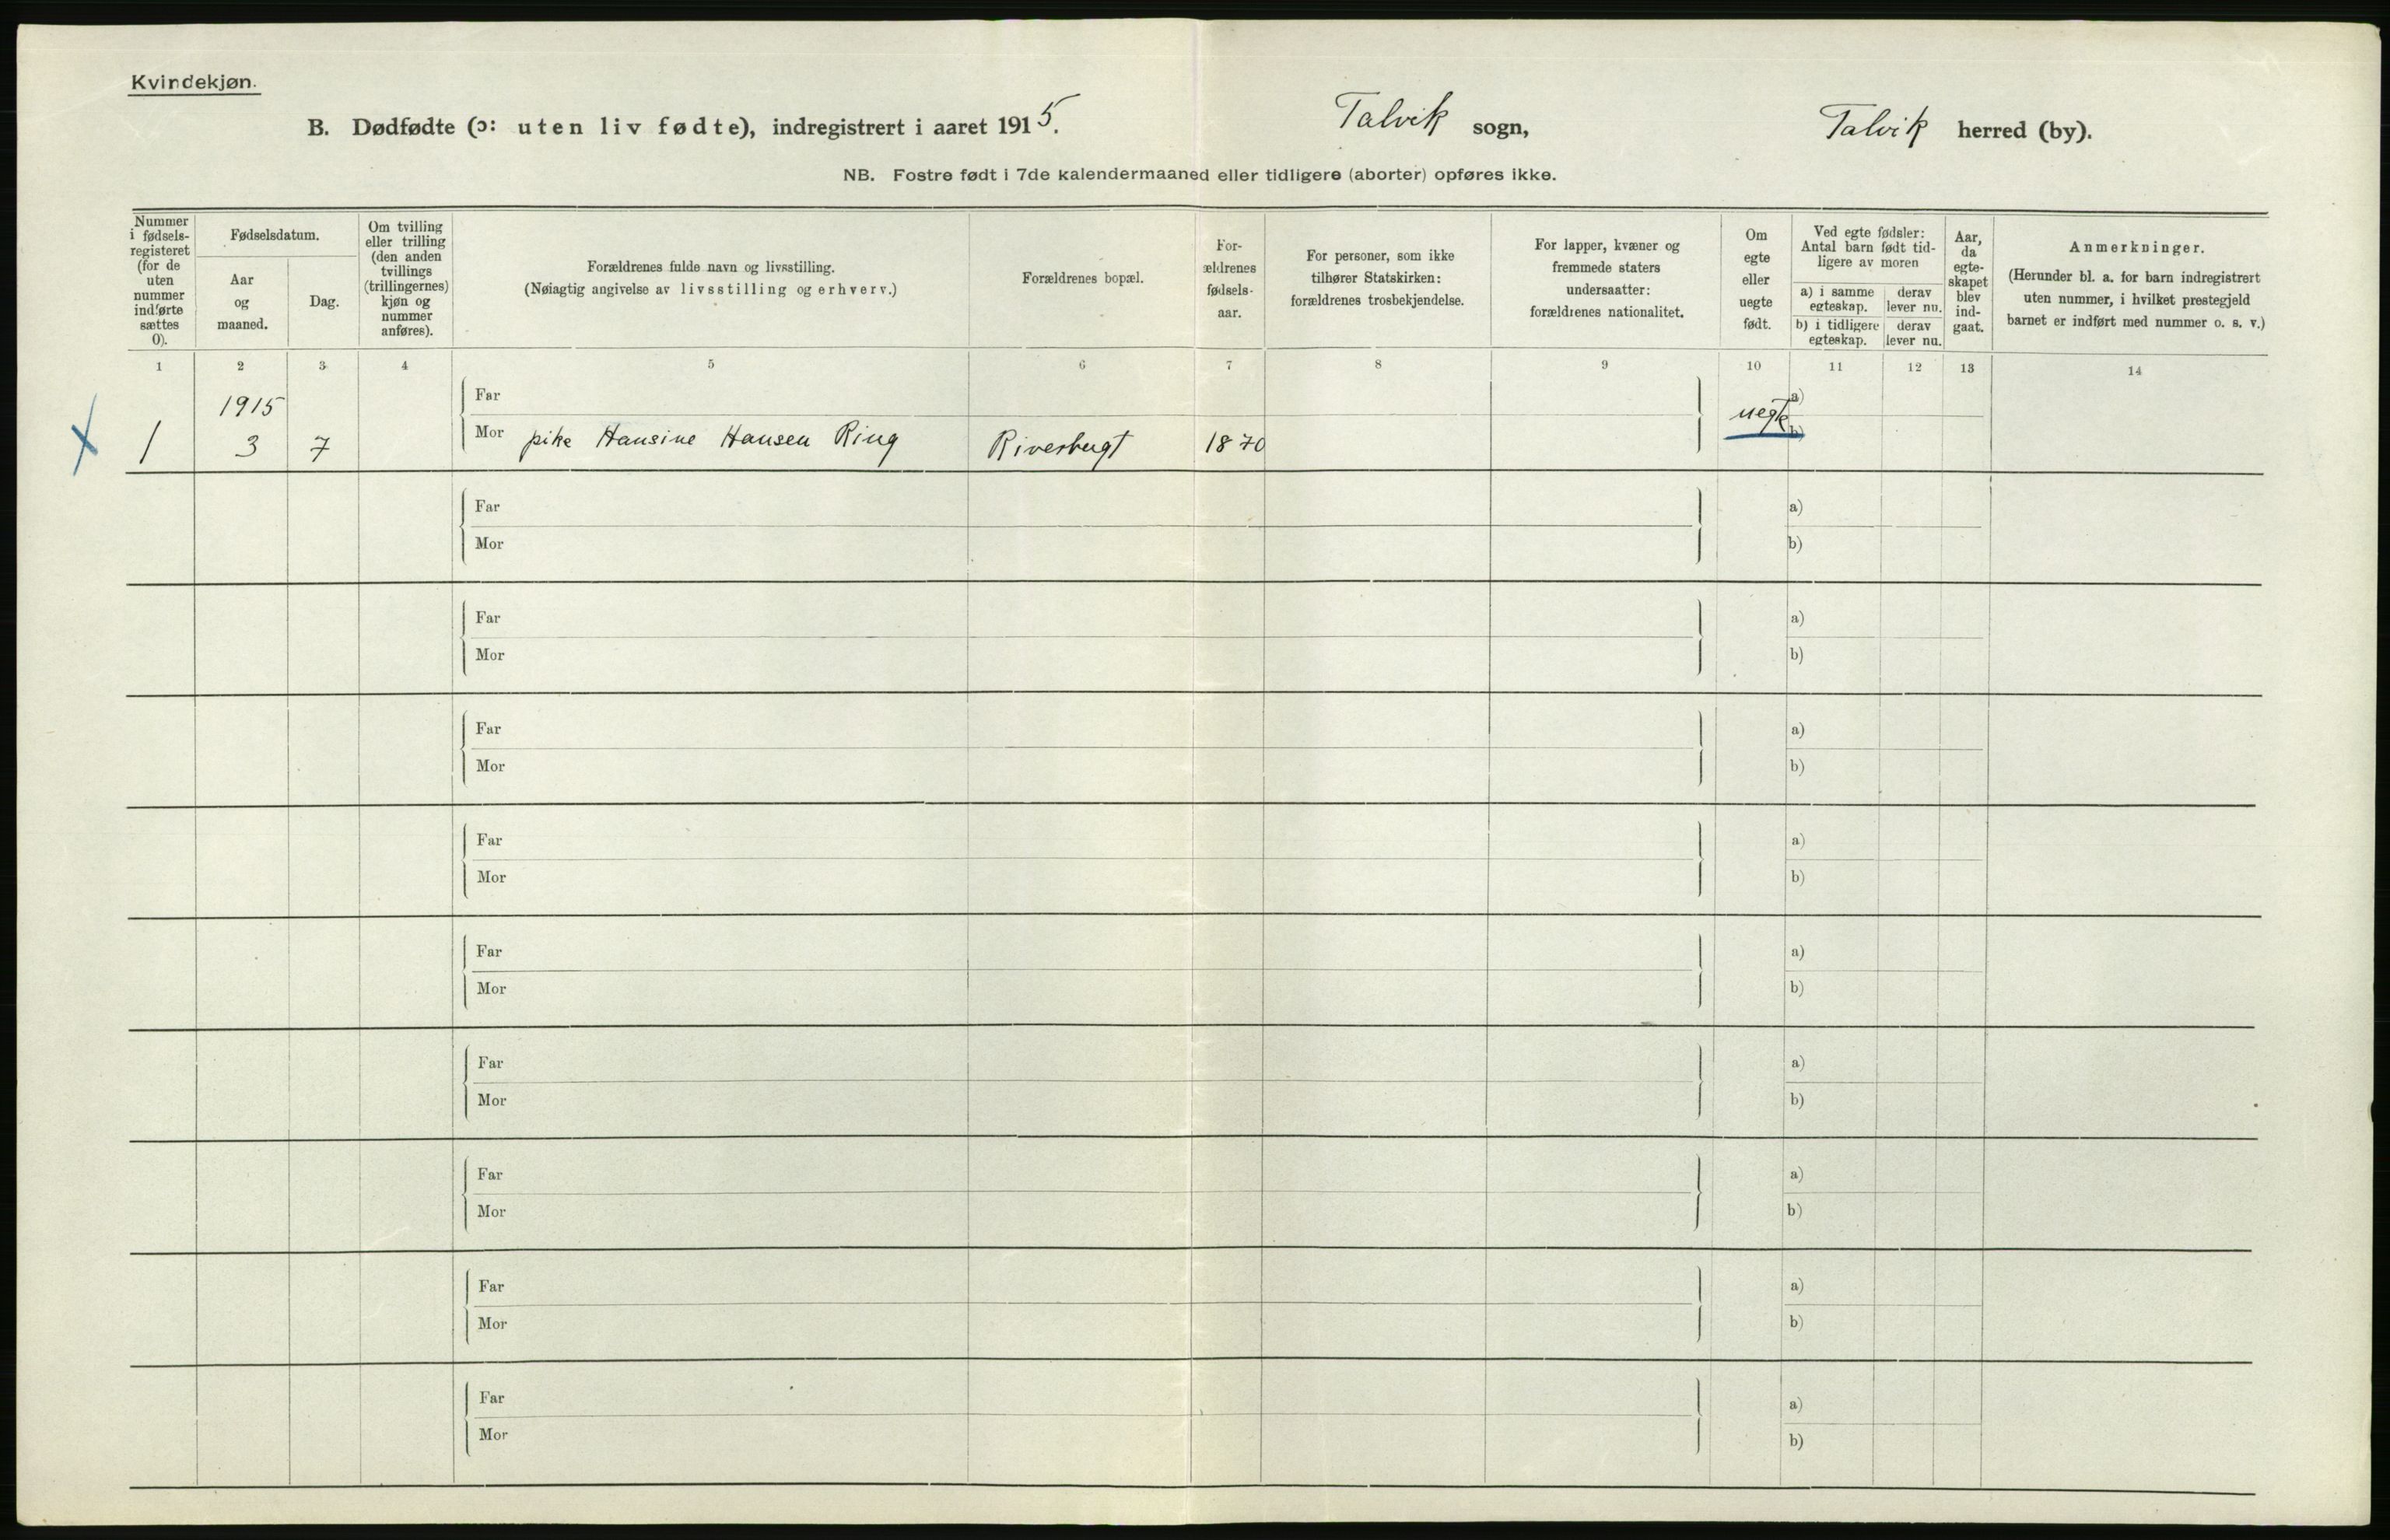 Kvindekjøn.
B. Dødfødte (ɔ: uten liv fødte), indregistrert i aaret 1915. Talvik sogn, Talvik herred (by).
NB. Fostre født i 7de kalendermaaned eller tidligere (aborter) opføres ikke.
Nummer
i fødsels-
registeret
(for de
uten
nummer
indførte
sættes
0).
Fødselsdatum.
Aar
og
maaned.
Dag.
Om tvilling
eller trilling
(den anden
tvillings
(trillingernes)
kjøn og
nummer
anføres).
Forældrenes fulde navn og livsstilling.
(Nøiagtig angivelse av livsstilling og erhverv.)
Forældrenes bopæl.
For-
ældrenes
fødsels-
aar.
For personer, som ikke
tilhører Statskirken:
forældrenes trosbekjendelse.
For lapper, kvæner og
fremmede staters
undersaatter:
forældrenes nationalitet.
Om
egte
eller
uegte
født.
Ved egte fødsler:
Antal barn født tid-
ligere av moren
a) i samme
egteskap.
derav
lever nu.
b) i tidligere
egteskap.
derav
lever nu.
Aar,
da
egte-
skapet
blev
ind-
gaat.
Anmerkninger.
(Herunder bl. a. for barn indregistrert
uten nummer, i hvilket prestegjeld
barnet er indført med nummer o. s. v.)
1 2 3 4 5 6 7 8 9 10 11 12 13 14
1915 Far uegte a)
1 3 7 Mor pike Hansine Hansen Ring Riverbugt 1870 b)
Far a)
Mor b)
Far a)
Mor b)
Far a)
Mor b)
Far a)
Mor b)
Far a)
Mor b)
Far a)
Mor b)
Far a)
Mor b)
Far a)
Mor b)
Far a)
Mor b)